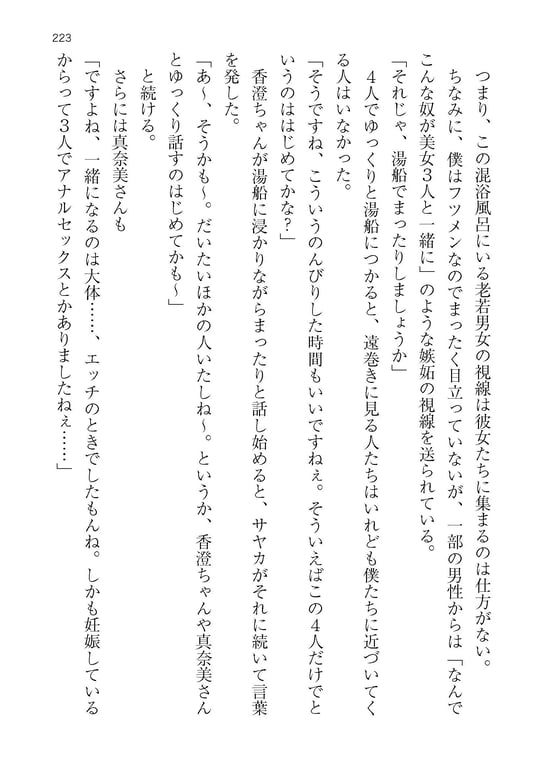 223
つまり、この混浴風呂にいる老若男女の視線は彼女たちに集まるのは仕方がない。
ちなみに、僕はフツメンなのでまったく目立っていないが、一部の男性からは「なんで
こんな奴が美女３人と一緒に」のような嫉妬の視線を送られている。
「それじゃ、湯船でまったりしましょうか」
４人でゆっくりと湯船につかると、遠巻きに見る人たちはいれども僕たちに近づいてく
る人はいなかった。
「そうですね、こういうのんびりした時間もいいですねぇ。そういえばこの４人だけでと
いうのははじめてかな？」
香澄ちゃんが湯船に浸かりながらまったりと話し始めると、サヤカがそれに続いて言葉
を発した。
「あ～、そうかも～。だいたいほかの人いたしね～。というか、香澄ちゃんや真奈美さん
とゆっくり話すのはじめてかも～」
と続ける。
さらには真奈美さんも
「ですよね、一緒になるのは大体……、エッチのときでしたもんね。しかも妊娠している
からって３人でアナルセックスとかありましたねぇ……」